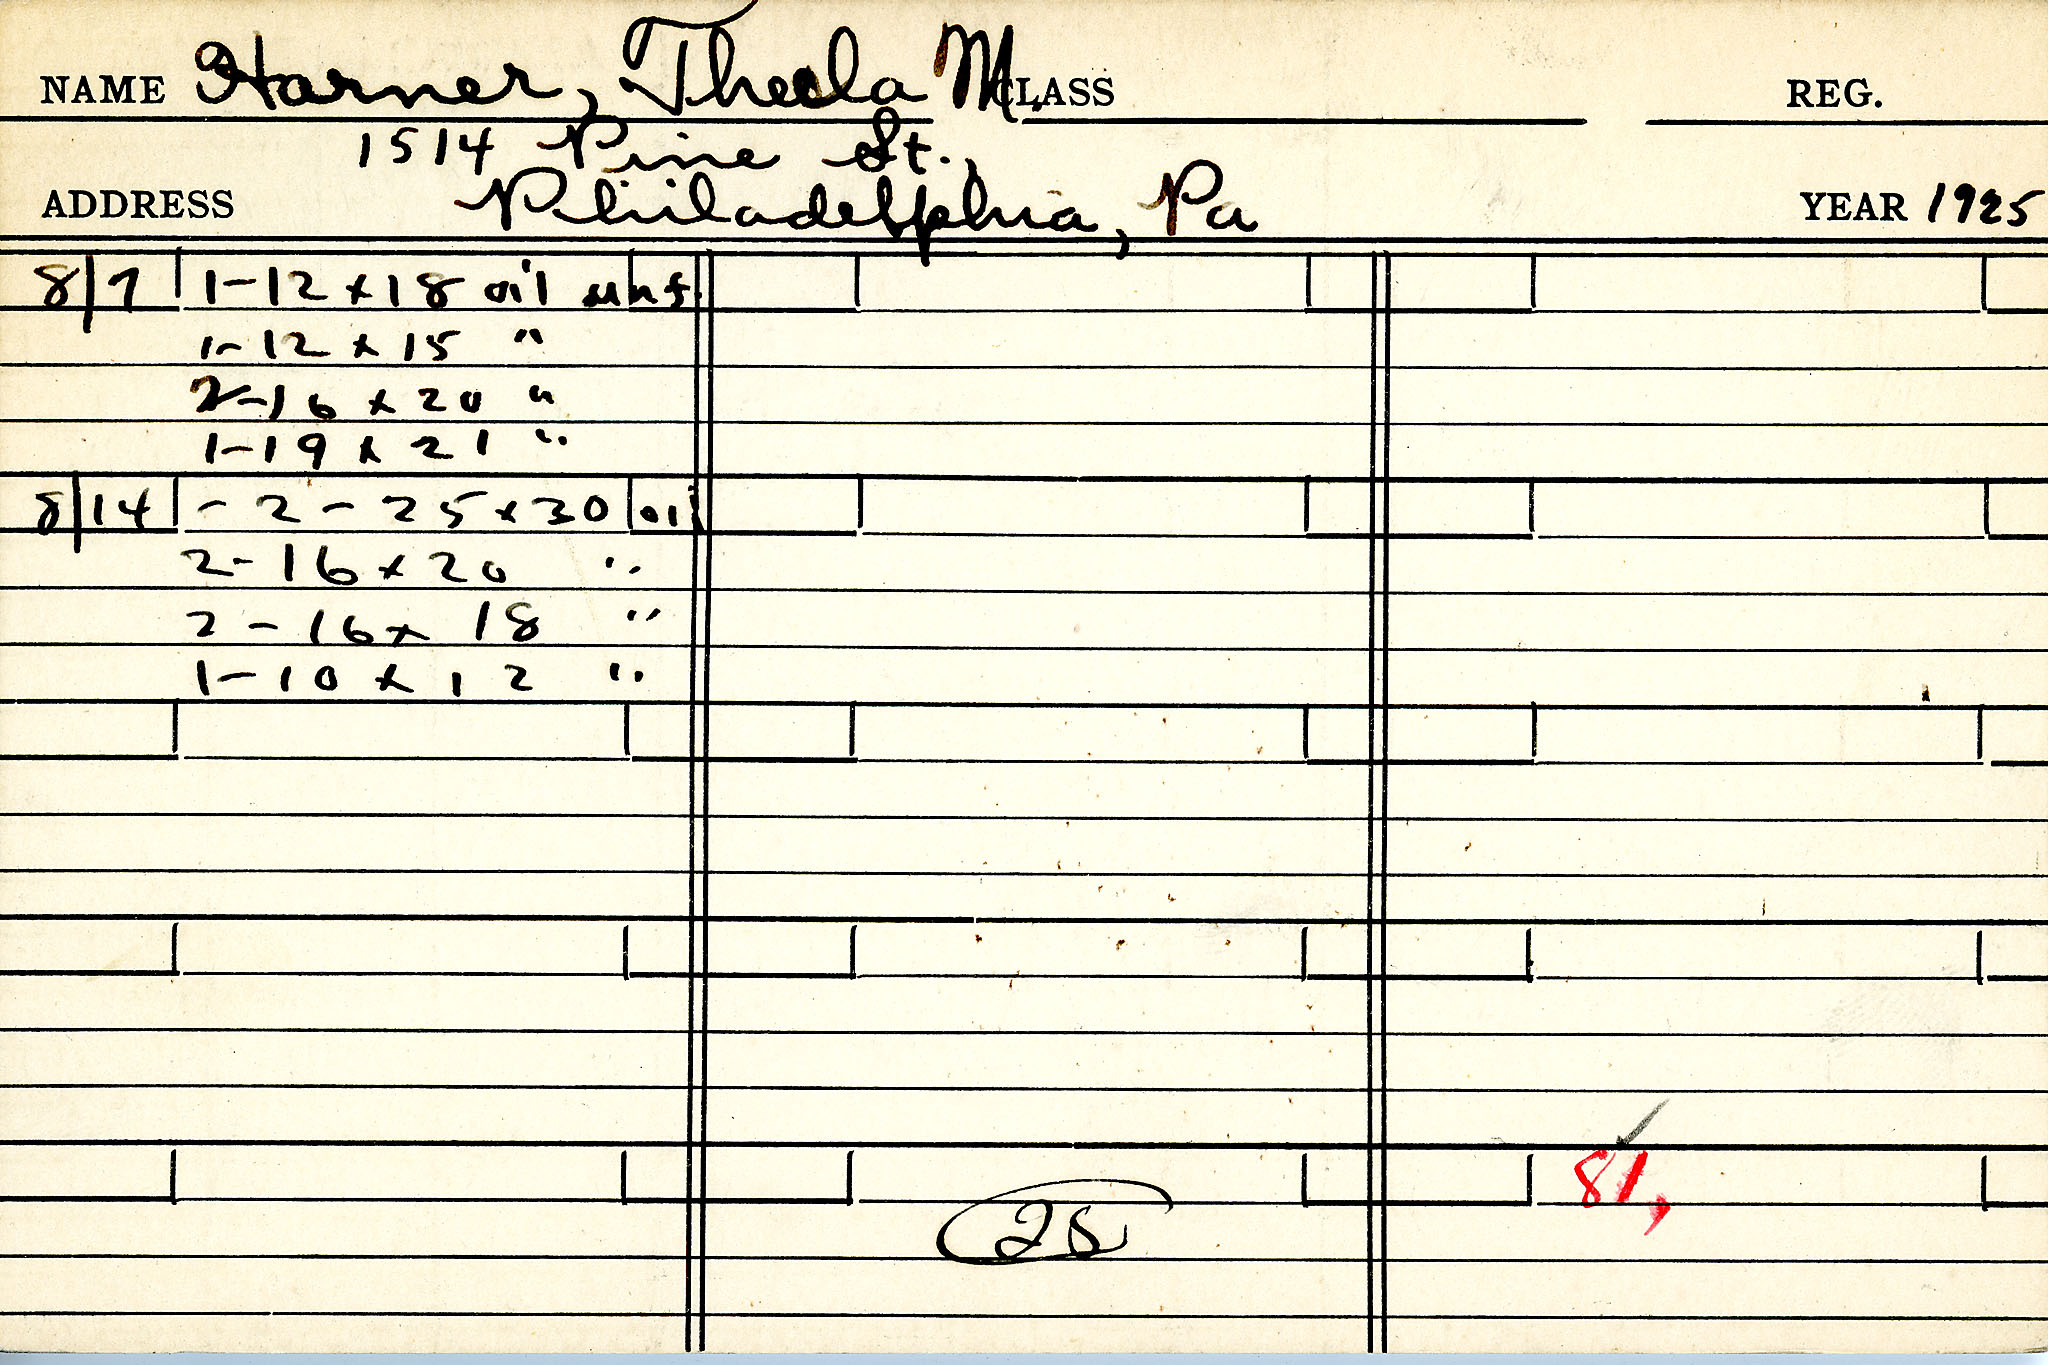 NAME Harner, Thecla M. CLASS REG.
1514 Pine St.,
ADDRESS Philadelphia, Pa YEAR 1925
8/7 1-12 x 18 oil unf.
1-12 x 15 "
2-16 x 20 "
1-19 x 21 "
8/14 - 2 - 25 x 30 oil
2-16 x 20 "
2-16 x 18 "
1-10 x 12 "
81,